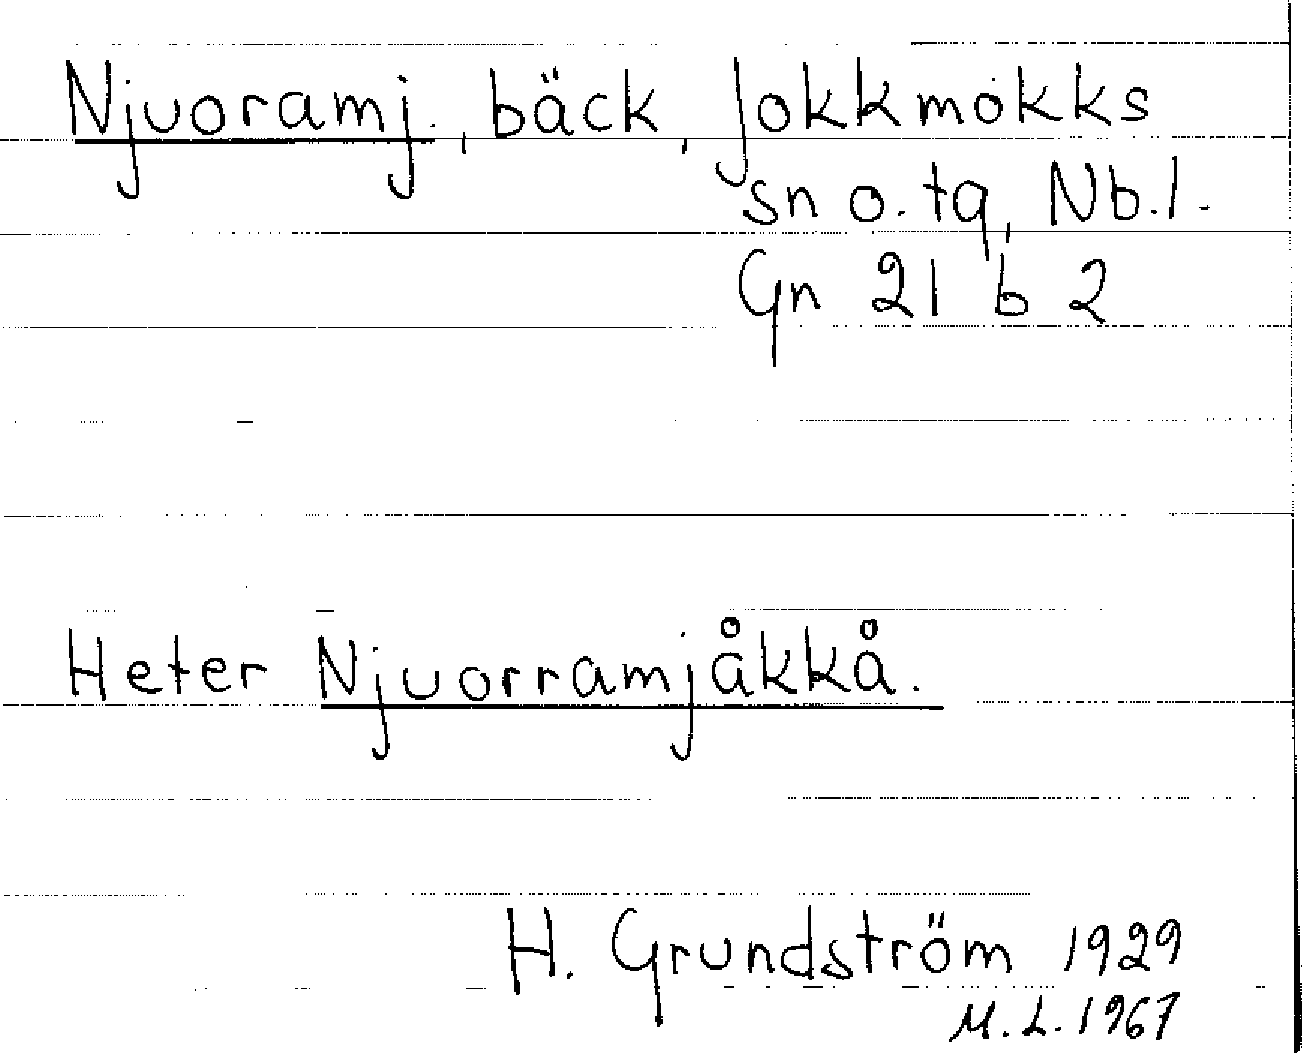 Njuoramj., bäck, Jokkmokks
sn o. tg, Nb.l.
Gn 21 b 2
Heter Njuorramjåkkå.
H. Grundström 1929
M.L. 1967